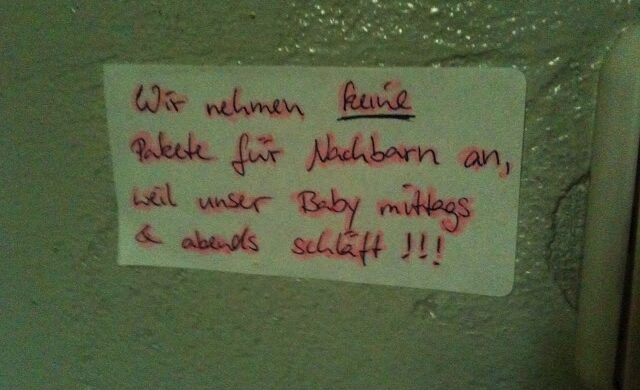 Wir nehmen keine
Pakete für Nachbarn an,
weil unser Baby mittags
& abends schläft !!!